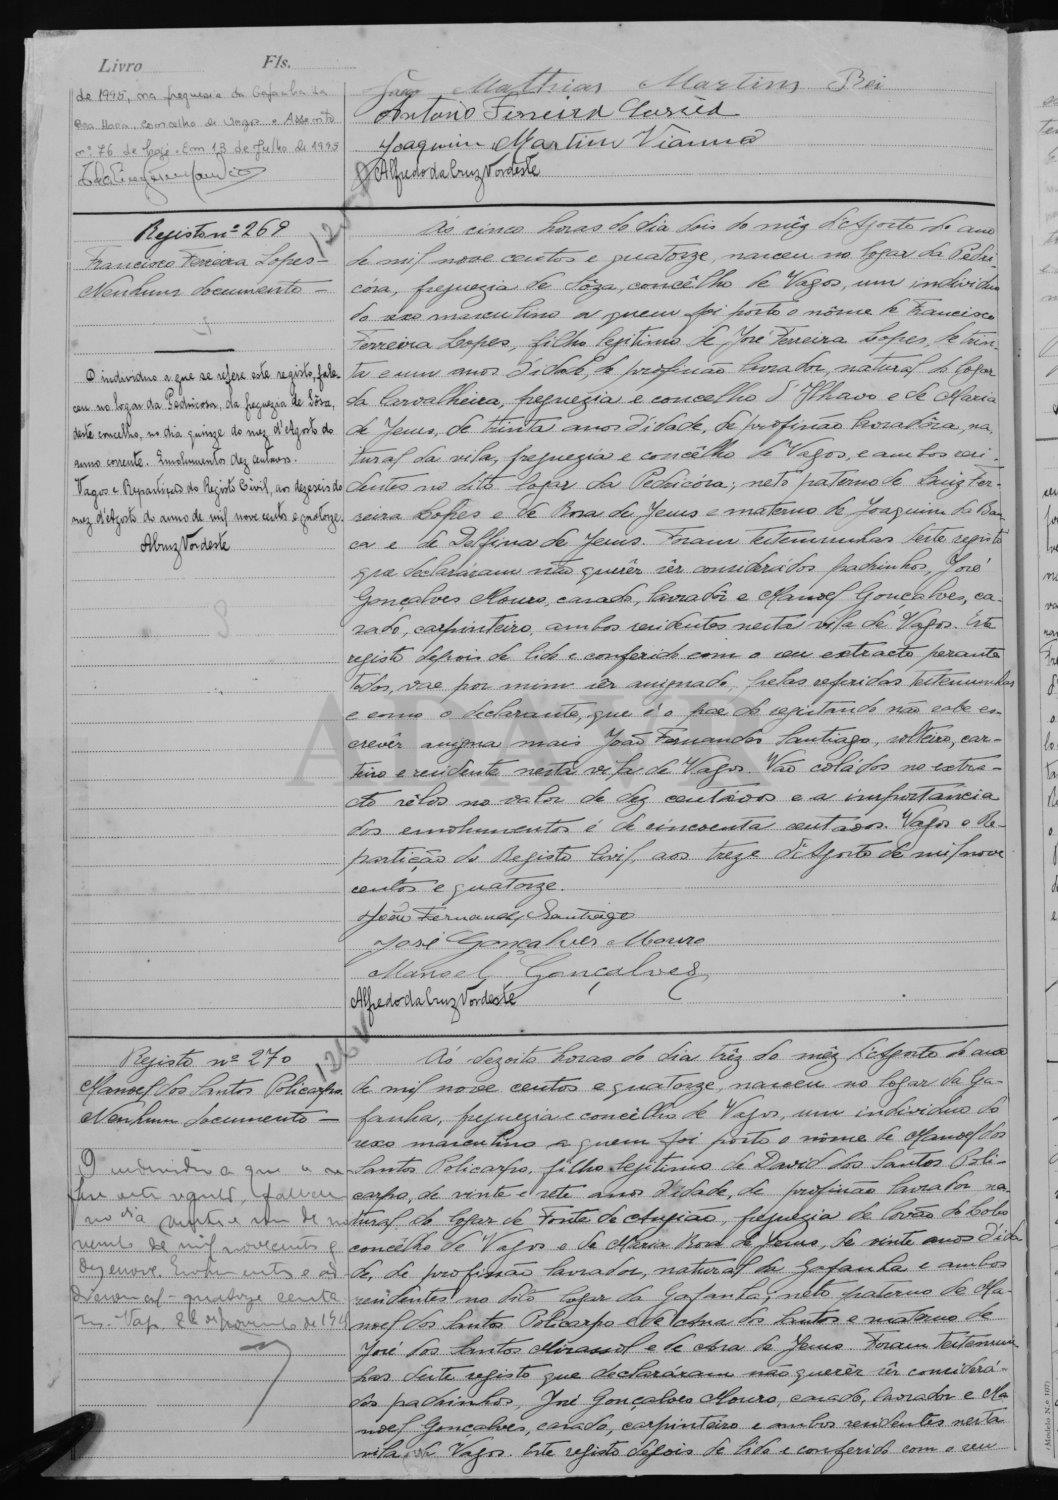 Livro Fls.
de 1995, na freguesia da Gafanha da
Boa Hora, concelho de Vagos e Assento
nº 76 de hoje. Em 13 de Julho de 1995
João Mathias Martins Rei
Antonio Ferreira
Joaquim Martins Vianna
Alfredo da Cruz Vordeste
Registo nº 269
Francisco Ferreira Lopes -
Nenhum documento -
O individuo a que se refere este registo, fale-
ceu no logar da Pedricosa, da freguezia de Sôza,
deste concelho, no dia quinze do mez d'Agosto do
anno corrente. Emolumentos dez centavos.
Vagos e Repartição do Registo Civil, aos dezeseis do
mez d'Agosto do anno de mil nove centos e quatorze.
ACruz Vordeste
Ás cinco horas do dia dois do mêz d'Agosto do ano
de mil nove centos e quatorze, nasceu no logar da Pedri-
cosa, freguezia de Sôza, concêlho de Vagos, um individuo
do sexo masculino a quem foi posto o nôme de Francisco
Ferreira Lopes, filho legitimo de José Ferreira Lopes, de trin-
ta e um anos d'idade, de profissão lavrador, natural do logar
da Carvalheira, freguezia e concelho d'Ilhavo e de Maria
de Jesus, de trinta anos d'idade, de profissão lavradôra, na-
tural da vila, freguezia e concêlho de Vagos, e ambos resi-
dentes no dito logar da Pedricósa; neto paterno de Luiz Fer-
reira Lopes e de Rosa de Jesus e materno de Joaquim da Ban-
ca e de Delfina de Jesus. Foram testemunhas deste registo
que declaráram não querêr sêr considerados padrinhos, José
Gonçalves Mouro, casado, lavradôr e Manoel Gonçalves, ca-
sado, carpinteiro, ambos residentes nesta vila de Vagos. Este
registo depois de lido e conferido com o seu extracto perante
todos, vae por mim sêr assignado, pelas referidas testemunhas
e como o declarante, que é o pae do registando não sabe es-
crevêr assigna mais João Fernandes Santiago, solteiro, car-
teiro e residente nesta vila de Vagos. Vão coládos no extra-
cto sêlos no valor de dez centávos e a importáncia
dos emolumentos é de cincoenta centávos. Vagos e Re-
partição do Registo Civil, aos treze d'Agosto de mil nove
centos e quatorze.
João Fernandes Santiago
José Gonçalves Mouro
Manoel Gonçalves
Alfredo da Cruz Vordeste
Registo nº 270
Manoel dos Santos Policarpo
Nenhum documento -
O individuo a que se re-
fere este registo, faleceu
no dia vinte e um de no
vembro de mil novecentos e
dezenove. Emolumentos e
quatorze centa
vos. Vagos, 26 de Novembro de 19
Ás dezoito horas do dia trêz do mêz d'Agosto do ano
de mil nove centos e quatorze, nasceu no logar da Ga-
fanha, freguezia e concêlho de Vagos, um individuo do
sexo masculino a quem foi posto o nôme de Manoel dos
Santos Policarpo, filho legitimo de David dos Santos Poli-
carpo, de vinte e sete anos d'idade, de profissão lavrador na-
tural do logar de Fonte de Angião, freguezia de Covão do Lobo
concêlho de Vagos e de Maria Rosa de Jesus, de vinte anos d'ida
de, de profissão lavrador, natural da Gafanha e ambos
residentes no dito logar da Gafanha; neto paterno de Ma-
noel dos Santos Policarpo e de Ana dos Santos e materno de
José dos Santos e de Ana de Jesus. Foram testemun-
has deste registo que declaráram não querêr sêr considerá-
dos padrinhos, José Gonçalves Mouro, casado, lavrador e Ma
noel Gonçalves, casado, carpinteiro e ambos residentes nesta
vila de Vagos. Este registo depois de lido e conferido com o seu
ADAVR